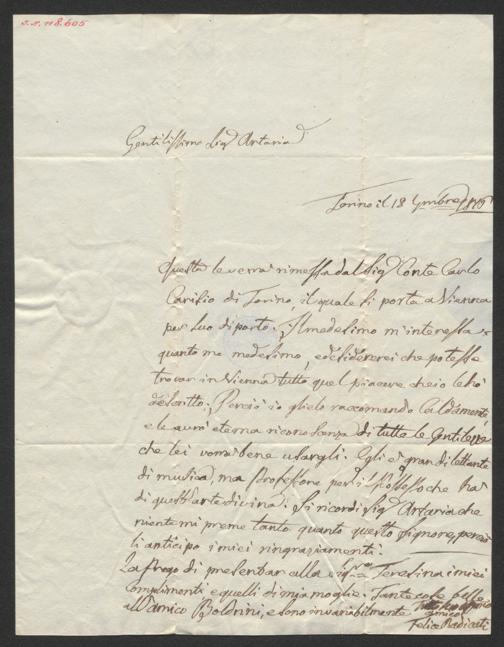 I.N. 118.605
Gentilissimo Sigr Artaria
Torino il 18 9mbre 1815
Questa le verrà rimessa dal Sigr Conte Carlo
Carisio di Torino, il quale si porta a Vienna
per suo diporto. Il medesimo m'interessa
quanto me medesimo, e desidererei che potesse
trovar in Vienna tutto quel piacere che io le ho
descritto. Perciò io glielo raccomando caldamente
e le avrò eterna riconoscenza di tutte le Gentilezze
che lei vorrà bene usargli. Egli è gran dilettante
di musica, ma Professore per il possesso che ha
di quest'arte divina. Si ricordi Sigr Artaria che
niente mi preme tanto quanto questo Signore, perciò
li anticipo i miei ringraziamenti.
La prego di presentar alla Sigra Teresina i miei
complimenti e quelli di mia moglie. Tante cose belle
all'amico Boldrini, e sono invariabilmente
amico
Felice Radicati